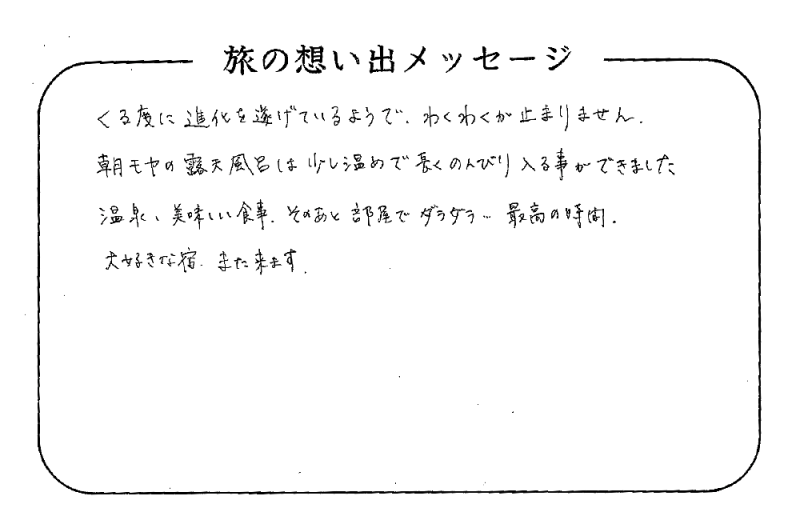 旅の想い出メッセージ
くる度に進化を遂げているようで、わくわくが止まりません。
朝モヤの露天風呂は少し温めで長くのんびり入る事ができました
温泉、美味しい食事、そのあと部屋でダラダラ… 最高の時間。
大好きな宿、また来ます。